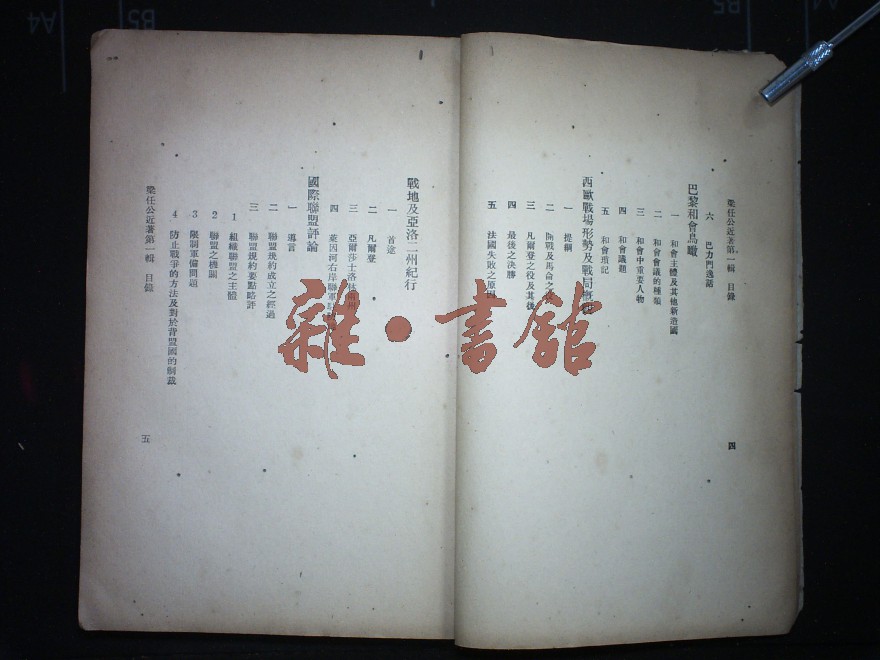 梁任公近著第一輯 目錄
六 巴力門逸話
巴黎和會鳥瞰
一 和會主體及其他新造國
二 和會會議的種類
三 和會中重要人物
四 和會議題
五 和會瑣記
西歐戰場形勢及戰局概
一 提綱
二 開戰及馬侖之役
三 凡爾登之役及其後
四 最後之決勝
五 法國失敗之原
四
戰地及亞洛二州紀行
一 首途
二 凡爾登
三 亞爾莎士洛林
四 萊因河右岸聯軍
國際聯盟評論
一 導言
二 聯盟規約成立之經過
三 聯盟規約要點略評
1 組織聯盟之主體
2 聯盟之機關
3 限制軍備問題
4 防止戰爭的方法及對於背盟國的制裁
梁任公近著第一輯 目錄
五
雜·書館
A4
B5
B5
A4